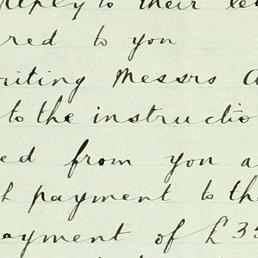 reply to their le
red to you
riting Messrs A
to the instructio
ed from you a
payment to the
ayment of £35